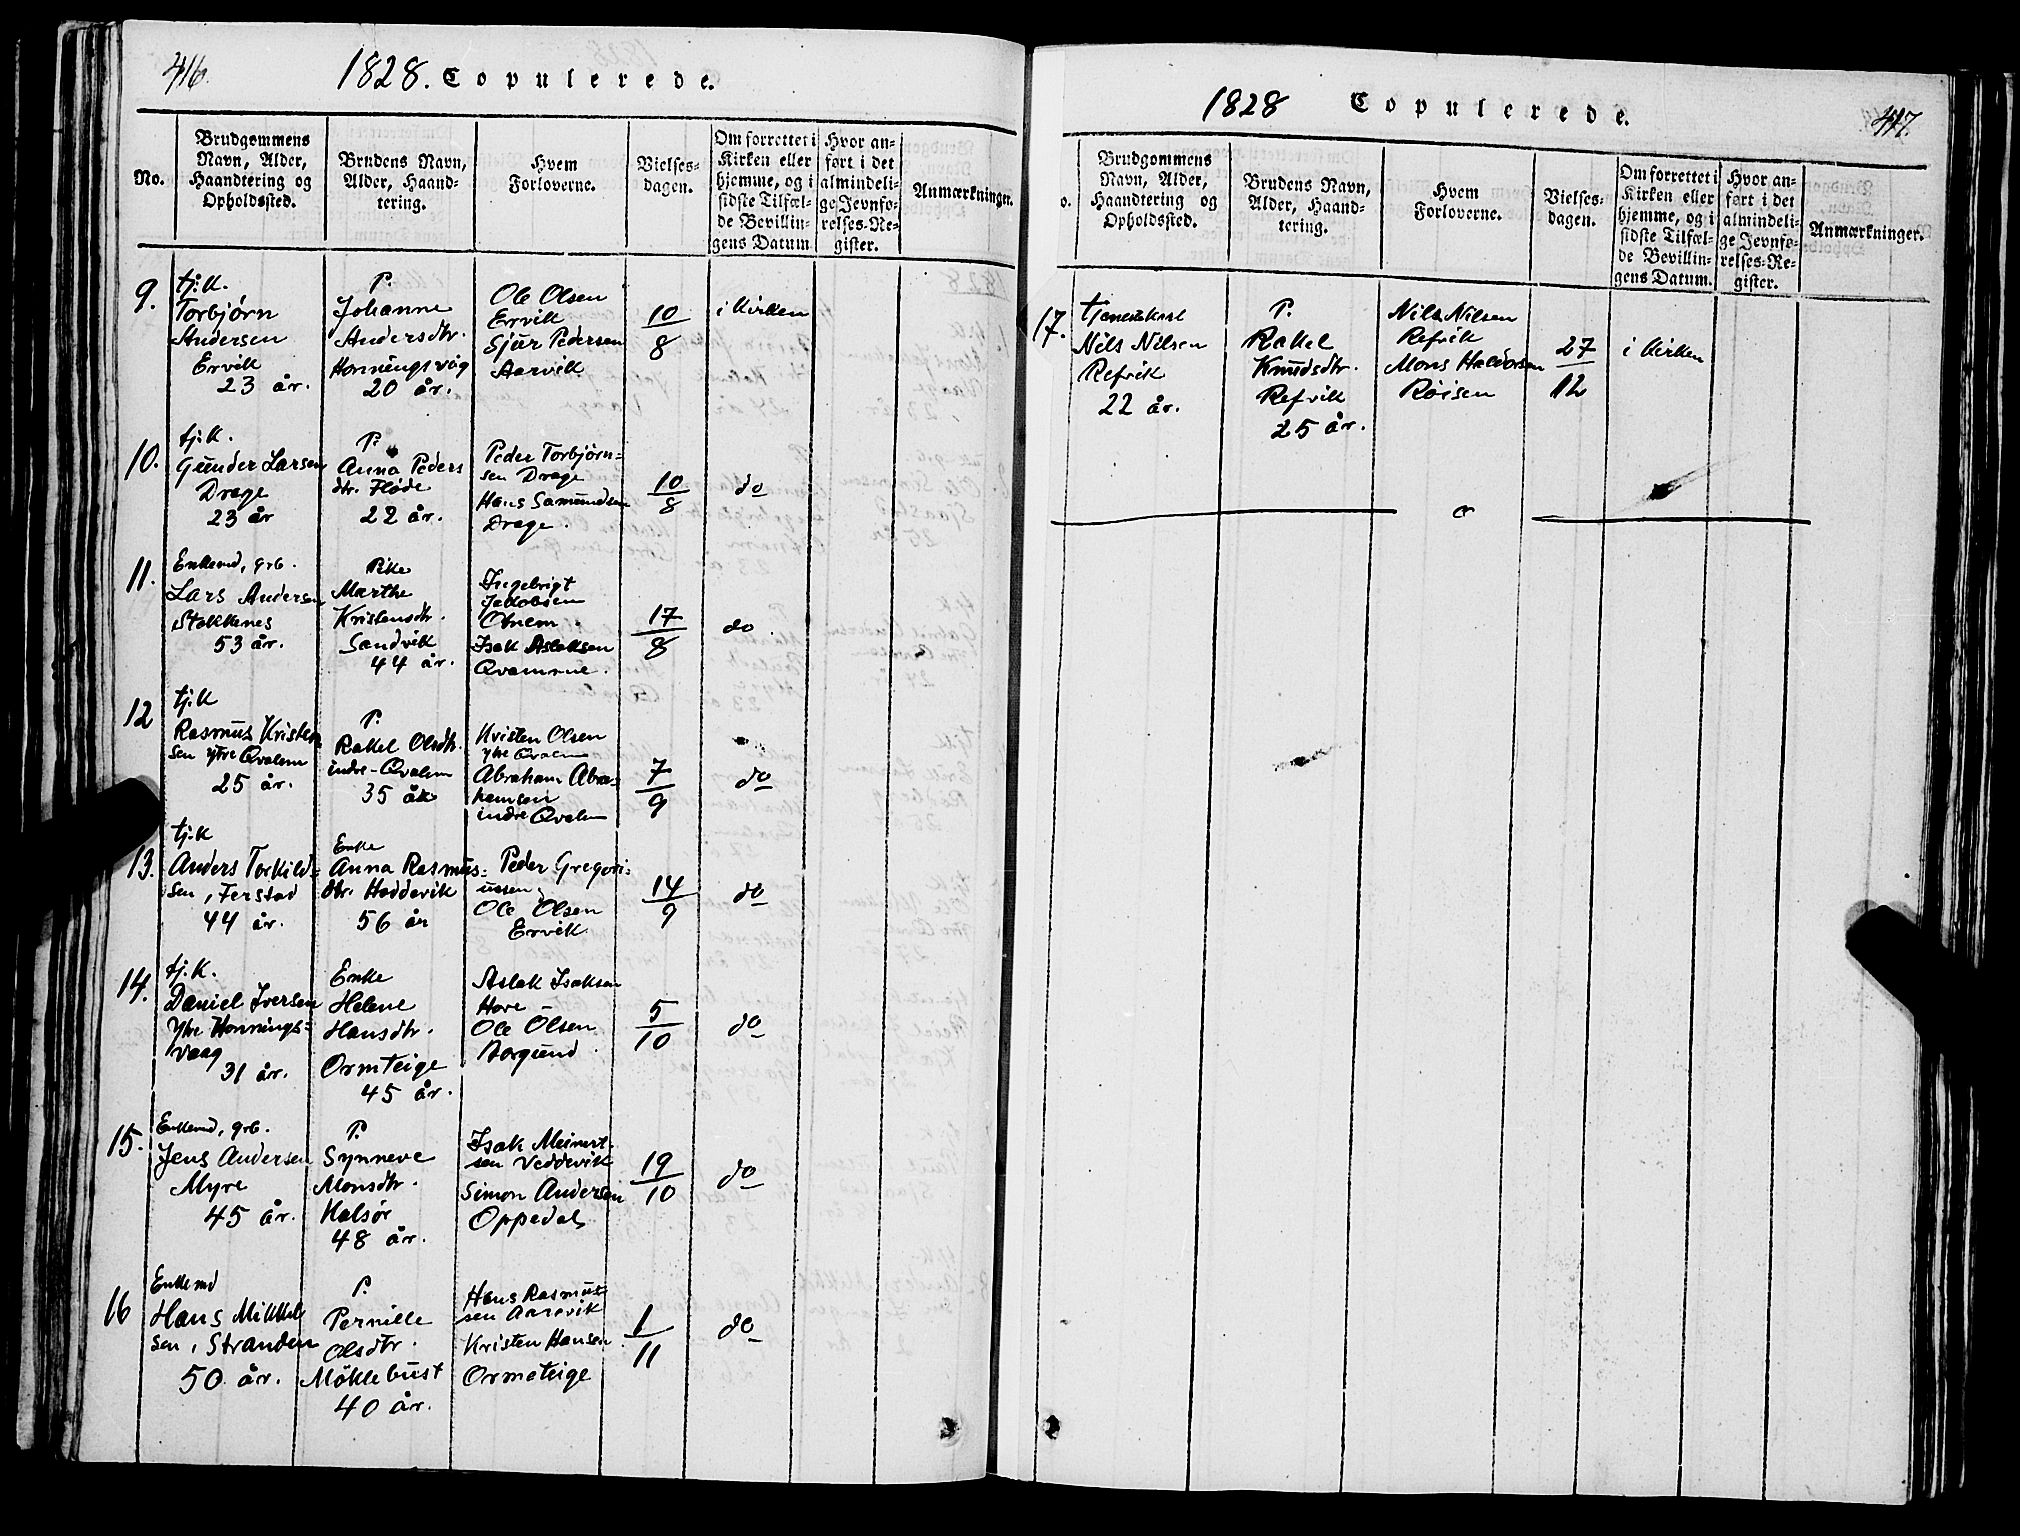 416.
1828. Copulerede.
No.
Brudgommens Navn, Alder, Haandtering og Opholdssted.
Brudens Navn, Alder, Haandtering.
Hvem Forloverne.
Vielsesdagen.
Om forrettet i Kirken eller hjemme, og i sidste Tilfælde Bevillingens Datum
Hvor anført i det almindelige Jevnførelses-Register.
Anmærkninger.
9.
tj.K.
Torbjørn
Andersen
Ervik
23 år.
P.
Johanne
Andersdtr.
Honningsvåg
20 år.
Ole Olsen
Ervik
Sjur Pedersen
Aarvik
10/8
i Kirken
10.
tj.K.
Gunder Larsen
Drage
23 år
P.
Anna Peders
dtr. Fløde
22 år.
Peder Torbjørn=
sen Drage
Hans Samundsen
Drage.
10/8
do
11.
Enkemd, grb.
Lars Andersen
Stokkenes
53 år.
Pike
Marthe
Kristensdtr.
Sandvik
44 år.
Ingebrigt
Jakobsen
Obnem.
Isak Aslaksen
Qvamme.
17/8
do
12
tj.K
Rasmus Kristen
sen ytre Qvalem
25 år.
P.
Rakel Olsdtr.
indre-Qvalem
35 år
Kristen Olsen
ytre Qvalem
Abraham Abra=
hamsen
indre Qvalem
7/9
do
13.
tj.K
Anders Torkild=
sen, Ferstad
44 år.
Enke
Anna Rasmus=
dtr. Hoddevik
56 år
Peder Gregori=
ussen
Ole Olsen
Ervik
14/9
do
14.
tj.K.
Daniel Iversen
Ytre Honnings=
vaag
31 år.
Enke
Helene
Hansdtr.
Ormteige
45 år.
Aslak Isaksen
Hove
Ole Olsen
Borgund
5/10
do
15.
Enkemd, grb.
Jens Andersen
Myre
45 år.
P.
Synneve
Monsdtr.
Halsør
48 år.
Isak Meinert
sen Veddevik
Simon Andersen
Oppedal
19/10
do
16
Enkemd
Hans Mikkel
sen, Stranden
50 år.
P.
Pernille
Olsdtr.
Møklebust
40 år.
Hans Rasmus
sen Aarevik
Kristen Hansen
Ormeteige
1/11
do
1828 Copulerede.
417.
o.
Brudgommens Navn, Alder, Haandtering og Opholdssted.
Brudens Navn, Alder, Haandtering.
Hvem Forloverne.
Vielsesdagen.
Om forrettet i Kirken eller hjemme, og i sidste Tilfælde Bevillingens Datum.
Hvor anført i det almindelige Jevnførelses-Register.
Anmærkninger.
17.
tjenestekarl
Nils Nilsen
Refvik
22 år.
P.
Rakel
Knudsdtr.
Refvik
25 år.
Nils Nilsen
Refvik
Mons Halvorsen
Røisen
27/12
i Kirken